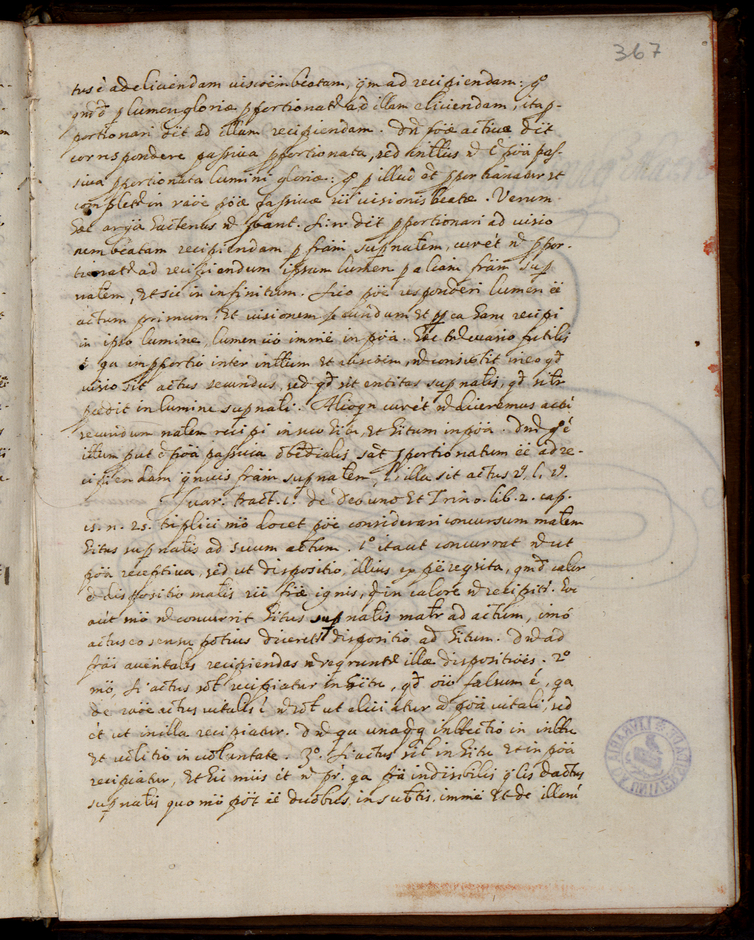 367
tus ē ad eliciendam visiōem beatam, qm̄ ad recipiendam: gº
qm̄d p lumen gloriæ pportionatr ad illam eliciendam, ita p-
portionari dēt ad illam recipiendam. Dn̄d pōæ activæ dēt
correspondere passiva pportionata, sed intllus n̄ ē pōa pas
siva pportionata lumini gloriæ: gº p illud et pportionatur et
complet in raōe pōæ passivæ visionis beatæ. Verum
hæc arg.ta hactenus n̄ pbant. Si n. dēt pportionari ad visio
nem beatam recipiendam p frām supnalem, cur et n̄ ppor-
tionatr ad recipiendum ipsum lumen p aliam frām sup
nalem, et sic in infinitum. Sico pōt responderi lumen eē
actum primum et visionem secundum et ea hanc recipi
in ipso lumine, lumen v̄o immē in pōa. Hæc tn̄ evasio futilis
ē qa impportio inter intllum et visiōem, n̄ consistit in eo qd
visio sit actus secundus, sed qd sit entitas supnalis, qd sitr
pcedit in lumine supnali. Alioqn cur et n̄ diceremus actū
secundum nalem recipi in suo hitu, et hitum in pōa. Dn̄d gº ē
itllum put ē pōa passiva obēdialis sat pportionatum eē ad re-
cipiendam qmvis frām supnalem, l. illa sit actus 2s, l. 1s.
Suar. tract. 1. de Deo uno et Trino. lib. 2. cap.
15. n. 25. triplici mō docet pōe considerari concursum malem
hitus supnalis ad suum actum. 1º ita ut concurrat n̄ ut
pōa receptiva, sed ut dispositio, illius ep pēreqsita, qmd calor
ē dispositio malis ... fræ ignis, q in calore n̄ recipitr. hoc
aūt mō n̄ concurrit hitus supnalis malr ad actum, imō
actus eo sensu potius diceretr dispositio ad hitum. Dn̄d ad
frās aventales recipiendas n̄ reqruntr illæ dispositiōes. 2º
mō, si actus solt recipiatur in hitu, qd oīo falsum ē, qa
de raōe actus vitalis ē n̄ solt ut eliciatur a pōa vitali, sed
et ut in illa recipiatur. Dn̄d qa unaqq intllectio in intllu
et volitio in voluntate. 3º. Si actus sit in hitu et in pōa
recipiatur, et hic mūs ēt n̄ pr. qa frā indivisibilis qlis ē actus
supnalis quo mō pōt eē in duobus insubtis immē et de illoru